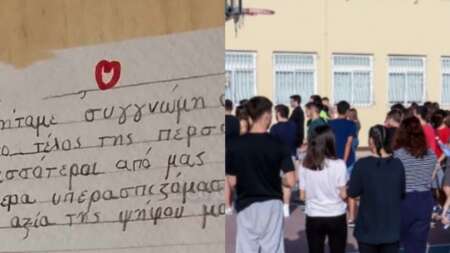 ήταμε συγγνώμη
ο τέλος της περσ
σσότεροι από μας
ερα υπερασπιζόμαστ
αξία της ψήφου μα